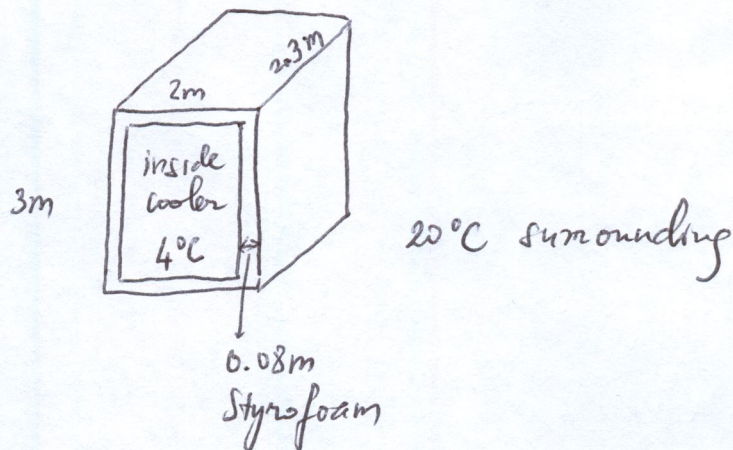 2.3m
2m
inside
cooler
4°C
3m
20°C surrounding
0.08m
Styrofoam